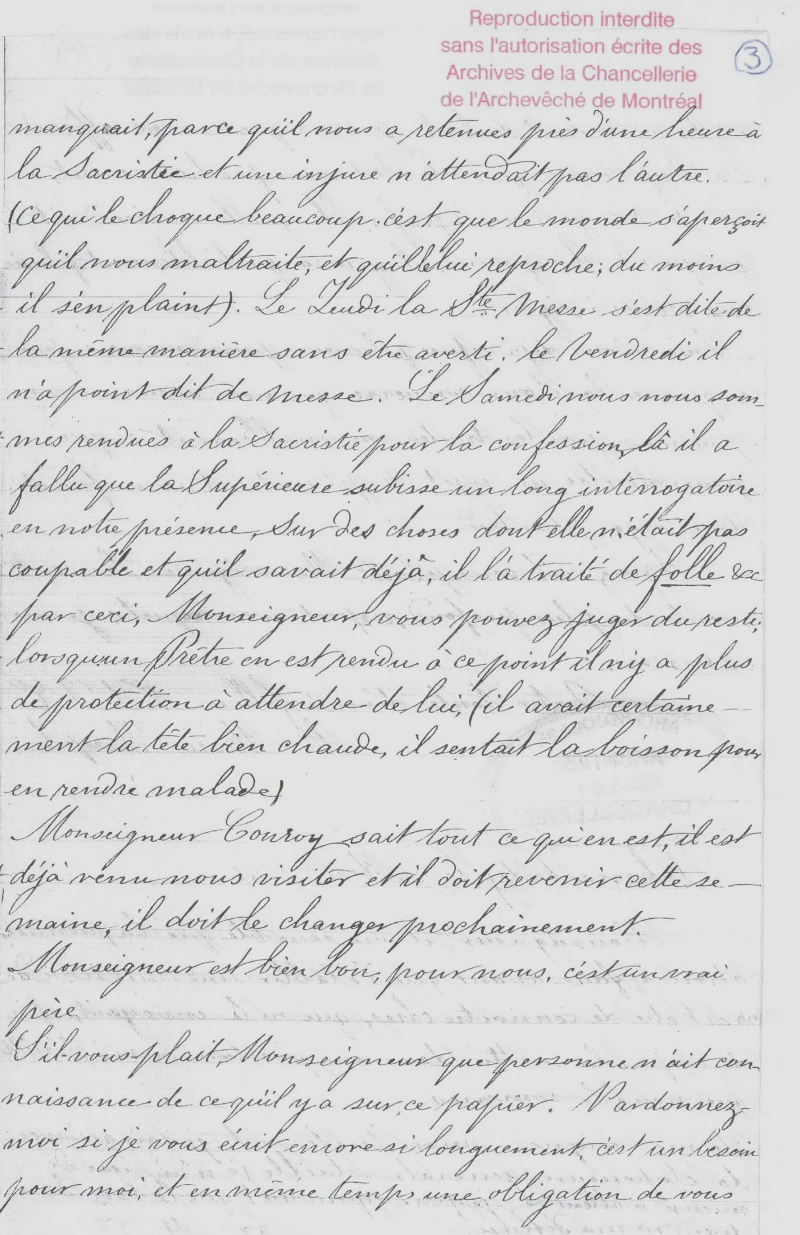 Reproduction interdite
sans l'autorisation écrite des
Archives de la Chancellerie
de l'Archevêché de Montréal
3
manquait, parce qu'il nous a retenues près d'une heure à
la Sacristie et une injure n'attendait pas l'autre.
(Ce qui le choque beaucoup c'est que le monde s'aperçoit
qu'il nous maltraite, et qu'il le lui reproche; du moins
il s'en plaint). Le Jeudi la Ste Messe s'est dite de
la même manière sans être averti. le Vendredi il
n'a point dit de Messe. Le Samedi nous nous som-
mes rendues à la Sacristie pour la confession, là il a
fallu que la Supérieure subisse un long intérrogatoire
en notre présence, sur des choses dont elle n'était pas
coupable et qu'il savait déjà, il l'a traité de folle &c
par ceci, Monseigneur, vous pouvez juger du reste;
lorsqu'un Prêtre en est rendu à ce point il n'y a plus
de protection à attendre de lui, (il avait certaine-
ment la tête bien chaude, il sentait la boisson pour
en rendre malade)
Monseigneur Conroy sait tout ce qui en est, il est
déjà venu nous visiter et il doit revenir cette se-
maine, il doit le changer prochainement.
Monseigneur est bien bon, pour nous, c'est un vrai
père
S'il-vous-plait, Monseigneur que personne n'ait con-
naissance de ce qu'il y a sur ce papier. Pardonnez-
moi si je vous écrit encore si longuement, c'est un besoin
pour moi, et en même temps une obligation de vous